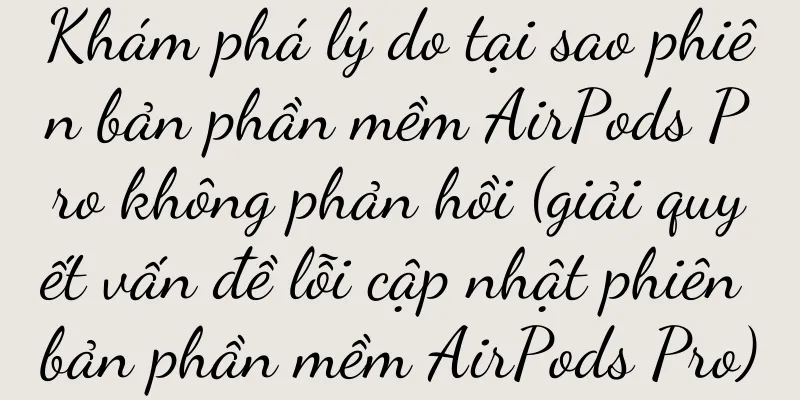 Khám phá lý do tại sao phiê
n bản phần mềm AirPods P
ro không phản hồi (giải quy
ết vấn đề lỗi cập nhật phiên
bản phần mềm AirPods Pro)